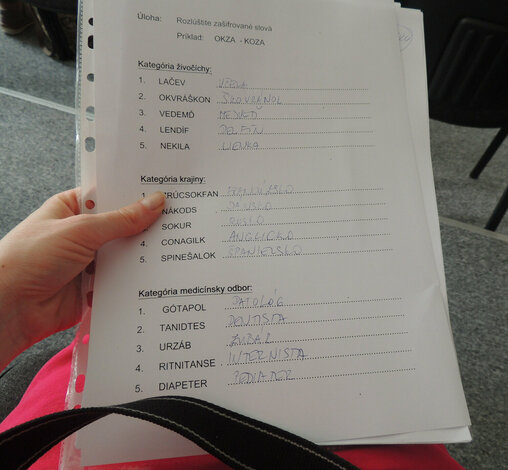 Úloha: Rozlúštite zašifrované slová
Príklad: OKZA - KOZA
Kategória živočíchy:
1. LAČEV VČELA
2. OKVRÁŠKON ŠKOVRÁNOK
3. VEDEMĎ MEDVEĎ
4. LENDÍF DELFÍN
5. NEKILA LIENKA
Kategória krajiny:
1. TRÚCSOKFAN FRANCÚZSKO
NÁKODS DÁNSKO
SOKUR RUSKO
4. CONAGILK ANGLICKO
5. SPINEŠALOK ŠPANIELSKO
Kategória medicínsky odbor:
1. GÓTAPOL PATOLÓG
2. TANIDTES DENTISTA
3. URZÁB ZUBÁR
4. RITNITANSE INTERNISTA
5. DIAPETER PEDIATER